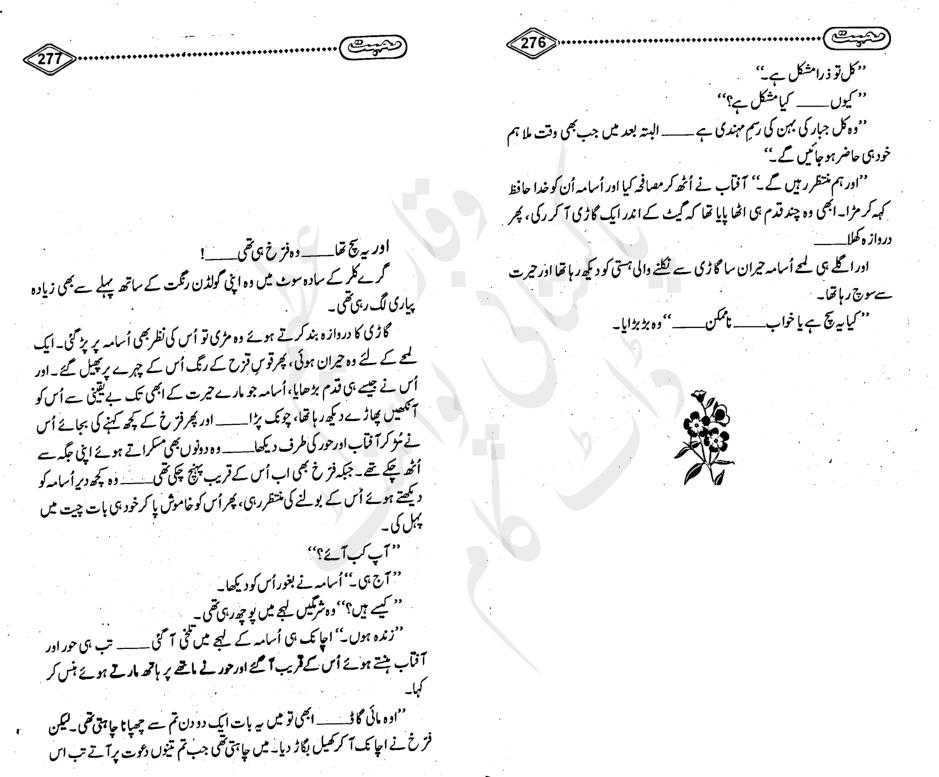 محبت
276
’’کل تو ذرا مشکل ہے۔‘‘
’’کیوں____ کیا مشکل ہے؟‘‘
’’وہ کل جبار کی بہن کی رسمِ مہندی ہے____ البتہ بعد میں جب بھی وقت ملا ہم
خود ہی حاضر ہو جائیں گے۔‘‘
’’اور ہم منتظر رہیں گے۔‘‘ آفتاب نے اُٹھ کر مصافحہ کیا اور اُسامہ اُن کو خدا حافظ
کہہ کر مڑا۔ ابھی وہ چند قدم ہی اٹھا پایا تھا کہ گیٹ کے اندر ایک گاڑی آ کر رکی، پھر
دروازہ کھلا____
اور اگلے ہی لمحے اُسامہ حیران سا گاڑی سے نکلنے والی ہستی کو دیکھ رہا تھا اور حیرت
سے سوچ رہا تھا۔
’’کیا یہ سچ ہے یا خواب____ ناممکن____‘‘ وہ بڑبڑایا۔
محبت
277
اور یہ سچ تھا____ وہ فرّخ ہی تھی____!
گرے کلر کے سادہ سوٹ میں وہ اپنی گولڈن رنگت کے ساتھ پہلے سے بھی زیادہ
پیاری لگ رہی تھی۔
گاڑی کا دروازہ بند کرتے ہوئے وہ مڑی تو اُس کی نظر بھی اُسامہ پر پڑ گئی۔ ایک
لمحے کے لئے وہ حیران ہوئی، پھر قوسِ قزح کے رنگ اُس کے چہرے پر پھیل گئے۔ اور
اُس نے جیسے ہی قدم بڑھایا، اُسامہ جو مارے حیرت کے ابھی تک بے یقینی سے اُس کو
آنکھیں پھاڑے دیکھ رہا تھا، چونک پڑا____ اور پھر فرّخ کے کچھ کہنے کی بجائے اُس
نے مُڑ کر آفتاب اور حور کی طرف دیکھا____ وہ دونوں بھی مسکراتے ہوئے اپنی جگہ سے
اُٹھ چکے تھے۔ جبکہ فرّخ بھی اب اُس کے قریب پہنچ چکی تھی____ وہ کچھ دیر اُسامہ کو
دیکھتے ہوئے اُس کے بولنے کی منتظر رہی، پھر اُس کو خاموش پا کر خود ہی بات چیت میں
پہل کی۔
’’آپ کب آئے؟‘‘
’’آج ہی۔‘‘ اُسامہ نے بغور اُس کو دیکھا۔
’’کیسے ہیں؟‘‘ وہ شرمگیں لہجے میں پوچھ رہی تھی۔
’’زندہ ہوں۔‘‘ اچانک ہی اُسامہ کے لہجے میں تلخی آ گئی____ تب ہی حور اور
آفتاب ہنستے ہوئے اُس کے قریب آ گئے اور حور نے ماتھے پر ہاتھ مارتے ہوئے ہنس کر
کہا۔
’’اوہ مائی گاڈ____ ابھی تو میں یہ بات ایک دو دن تم سے چھپانا چاہتی تھی۔ لیکن
فرّخ نے اچانک آ کر کھیل بگاڑ دیا۔ میں چاہتی تھی جب تم تینوں دعوت پر آتے تب اس
پاکستانی پوائنٹ
ڈاٹ کام